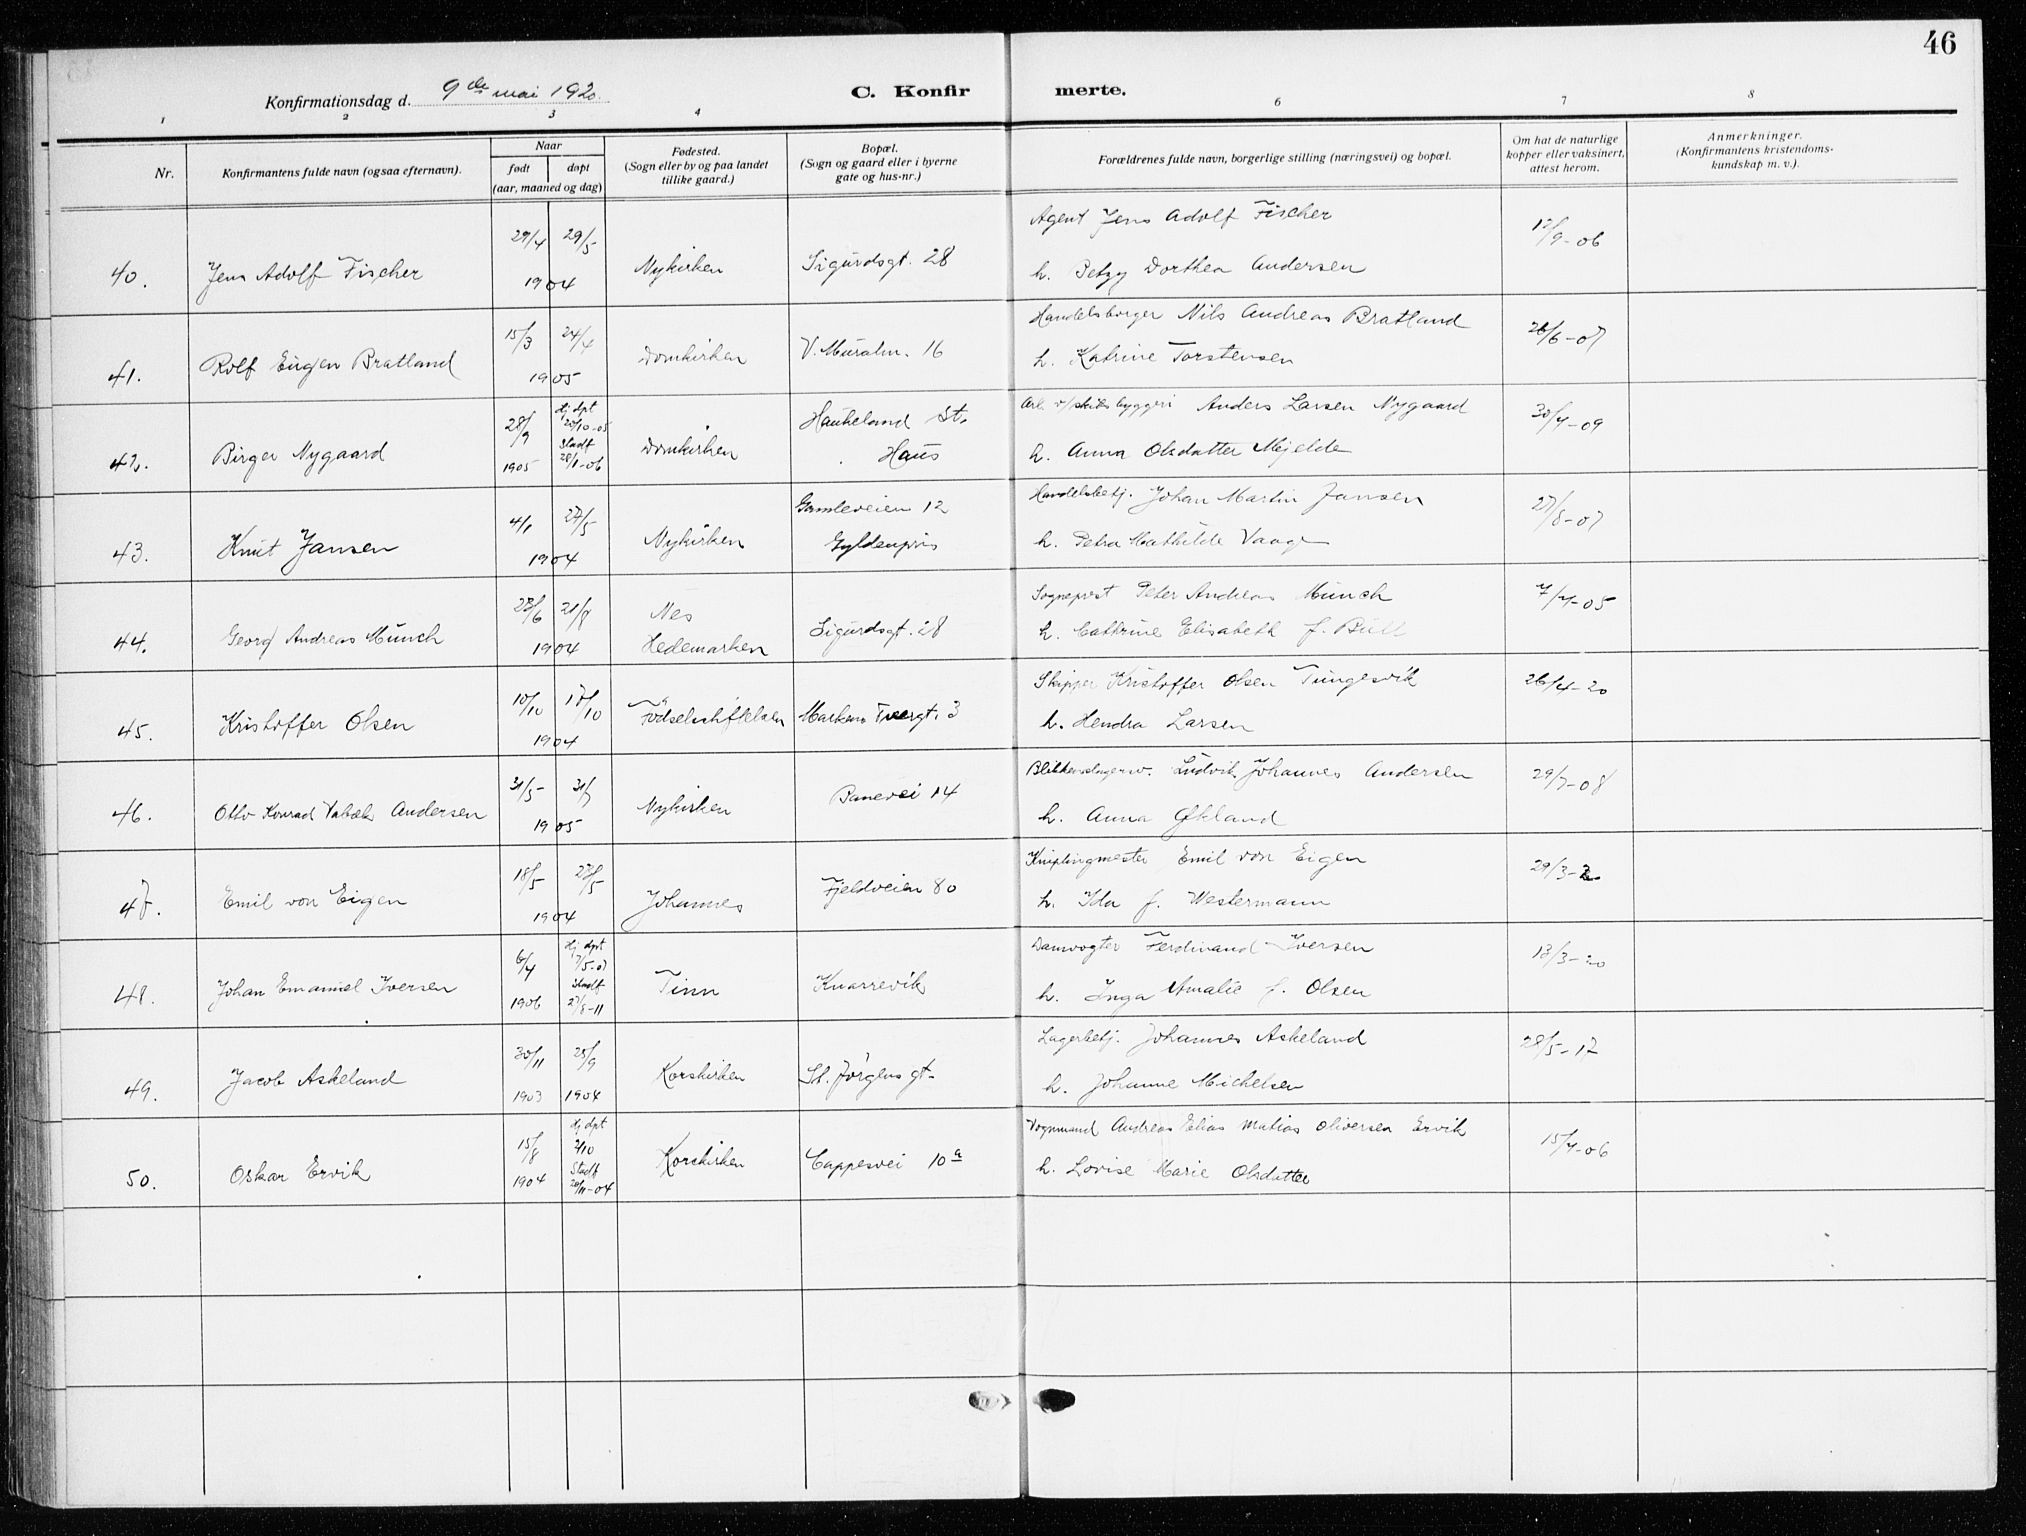 46
Konfirmationsdag d. 9de mai 1920.
C. Konfirmerte.
1 2 3 4 6 7 8
Nr.
Konfirmantens fulde navn (ogsaa efternavn).
Naar
født døpt
(aar, maaned og dag)
Fødested.
(Sogn eller by og paa landet
tillike gaard.)
Bopæl.
(Sogn og gaard eller i byerne
gate og hus-nr.)
Forældrenes fulde navn, borgerlige stilling (næringsvei) og bopæl.
Om hat de naturlige
kopper eller vaksinert,
attest herom.
Anmerkninger.
(Konfirmantens kristendoms-
kundskap m. v.).
29/4 29/5 Agent Jens Adolf Fischer 12/9-06
40. Jens Adolf Fischer 1904 Nykirken Sigurdsgt. 28 h. Petzy Dorthea Andersen
15/3 24/4 Handelsborger Nils Andreas Bratland 26/6-07
41. Rolf Eugen Bratland 1905 Domkirken V. Muralm. 16 h. Katrine Torstensen
28/9 Hj dpt 20/10-05 Haukeland St. Arb. v/skibsbyggeri Anders Larsen Nygaard 30/4-09
42. Birger Nygaard 1905 Stadf 28/1-06 Domkirken Haus h. Anna Olsdatter Mjelde
4/1 27/5 Gamleveien 12 Handelsbetj. Johan Martin Jansen 27/8-07
43. Knut Jansen 1904 Nykirken Gyldenpris h. Petra Mathilde Vaage
23/6 21/8 Nes Sogneprest Peter Andreas Münch 7/4-05
44. Georg Andreas Münch 1904 Hedemarken Sigurdsgt. 28 h. Cathrine Elisabeth f. Bull
10/10 17/10 Skipper Kristoffer Olsen Tungesvik 26/4-20
45. Kristoffer Olsen 1904 Fødselsstiftelsen Markens Tvergt. 3 h. Hendra Larsen
31/5 31/7 Blikkenslagersv. Ludvik Johannes Andersen 29/7-08
46. Otto Konrad Vabæk Andersen 1905 Nykirken Banevei 14 h. Anna Økland
18/5 27/5 Kniplingmester Emil von Eigen 29/3-20
47. Emil von Eigen 1904 Johannes Fjeldveien 80 h. Ida f. Westermann
6/4 Hj dpt 7/5-07 Damvogter Ferdinand Iversen 13/3-20
48. Johan Emanuel Iversen 1906 Stadf 27/8-11 Tinn Knarrevik h. Inga Amalie f. Olsen
30/11 25/9 Lagerbetj. Johannes Askeland 28/5-17
49. Jacob Askeland 1903 1904 Korskirken St. Jørgensgt. h. Johanne Michelsen
15/8 Hj dpt 2/10 Vognmand Andreas Elias Matias Oliversen Ervik 15/4-06
50. Oskar Ervik 1904 Stadf 20/11-04 Korskirken Cappesvei 10a h. Lovise Marie Olsdatter